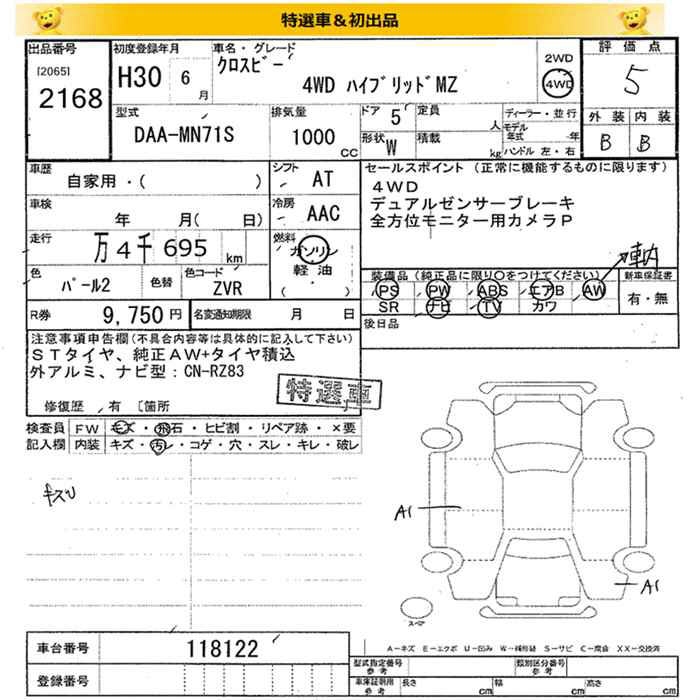 特選車＆初出品
出品番号
[2065]
2168
初度登録年月
H30 6月
車名・グレード
クロスビー
4WD ハイブリッドMZ
2WD
4WD
評価点
5
外装 内装
B B
型式
DAA-MN71S
排気量
1000 CC
ドア 5
定員 人
形状 W
積載 kg
ディーラー・並行
モデル年式 年
ハンドル 左・右
車歴
自家用・( )
シフト
AT
車検
年 月( 日)
冷房
AAC
走行
万4千695 km
燃料
ガソリン
軽油
( )
色
パール2
色替
色コード
ZVR
R券
9,750円
名変通知期限 月 日
セールスポイント (正常に機能するものに限ります)
4WD
デュアルゼンサーブレーキ
全方位モニター用カメラP
車内
装備品(純正品に限り○をつけてください)
新車保証書
PS PW ABS エアB AW
有・無
SR ナビ TV カワ
後日品
注意事項申告欄(不具合内容等は具体的に記入して下さい)
STタイヤ、純正AW+タイヤ積込
外アルミ、ナビ型：CN-RZ83
特選車
修復歴 有 [箇所
検査員 FW キズ・飛石・ヒビ割・リペア跡・×要
記入欄 内装 キズ・汚レ・コゲ・穴・スレ・キレ・破レ
キズU
A1
A1
スペア
車台番号
118122
登録番号
A－キズ E－エクボ U－凹み W－補修跡 S－サビ C－腐食 XX－交換済
型式指定番号
参考
類別区分番号
参考
車庫証明用
参考
長さ cm 幅 cm 高さ cm